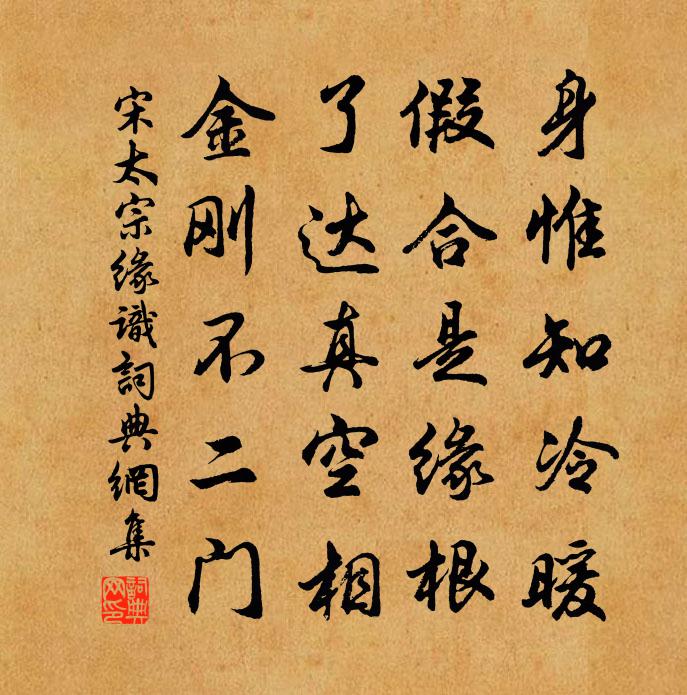 身惟知冷暖
假合是缘根
了达真空相
金刚不二门
宋太宗缘識詞典網集
詞典网印